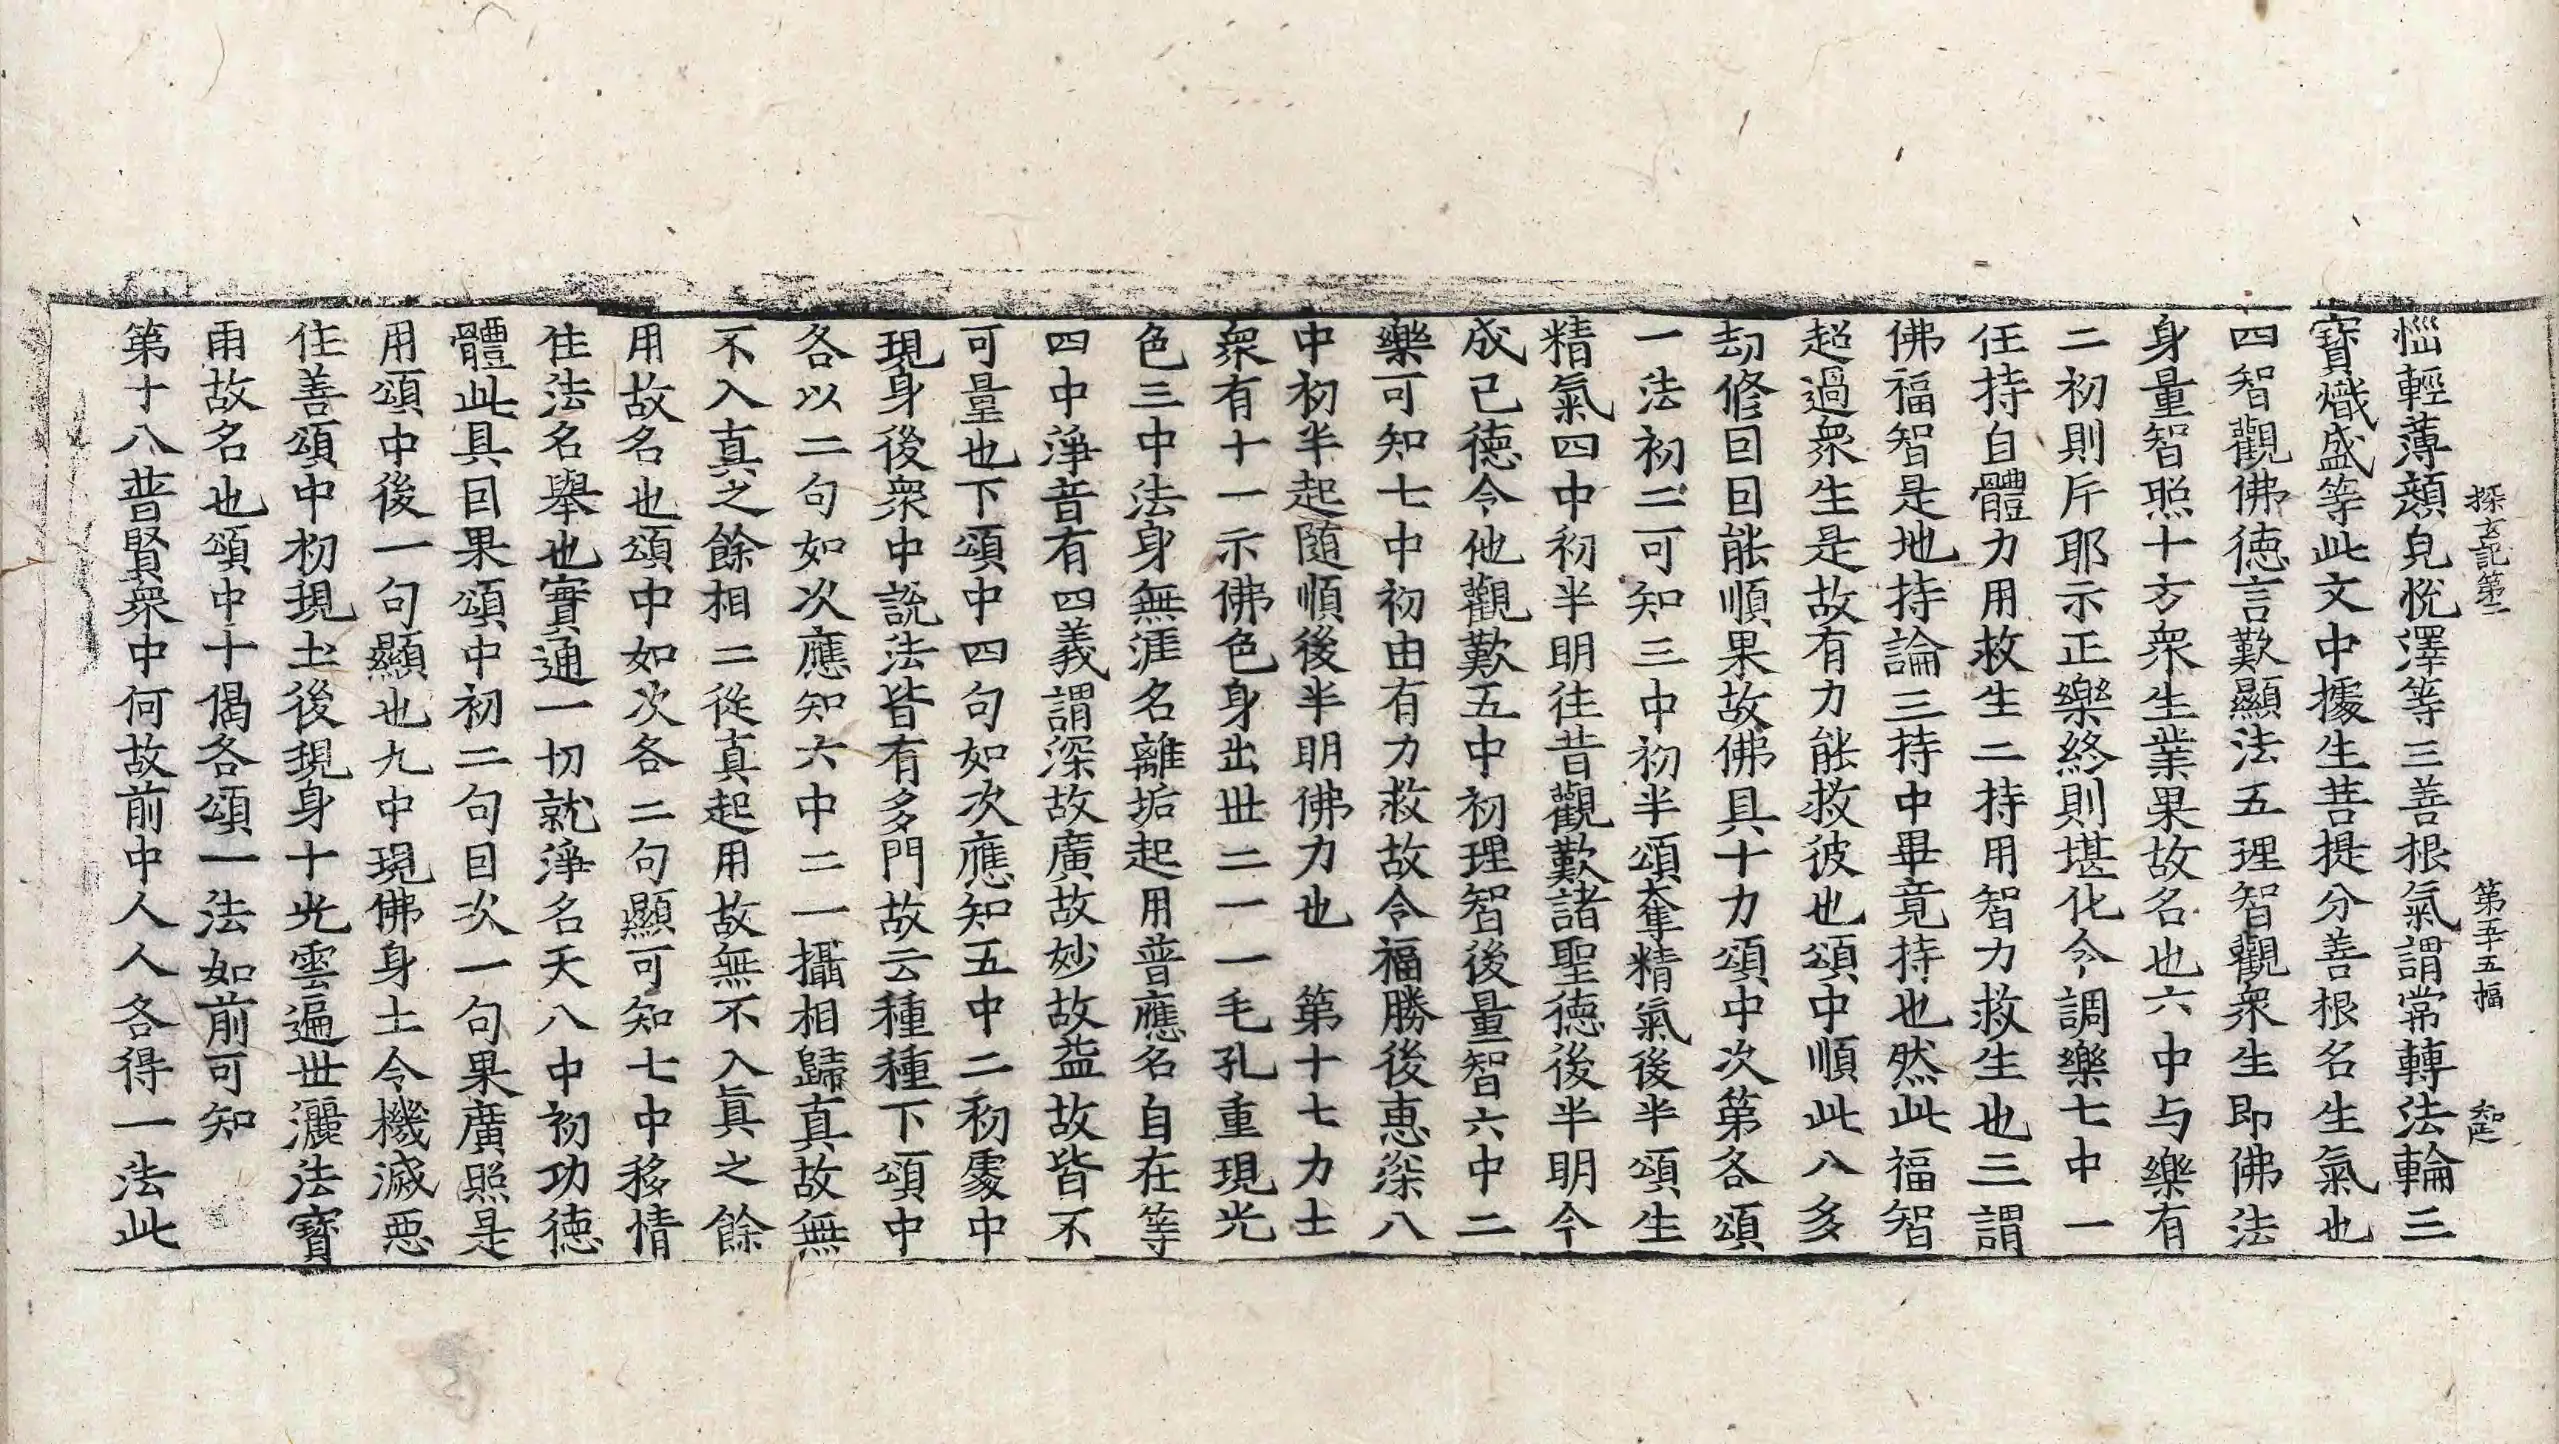 探玄記第二　第五十五幅　知正
惱輕薄顔皃恱澤等三善根氣謂常轉法輪三
寶熾盛等此文中據生菩提分善根名生氣也
四智觀佛德言歎顯法五理智觀衆生即佛法
身量智照十方衆生業果故名也六中与樂有
二初則斥耶示正樂終則堪化令調樂七中一
任持自體力用救生二持用智力救生也三謂
佛福智是地持論三持中畢竟持也然此福智
超過衆生是故有力能救彼也頌中順此八多
劫修因因能順果故佛具十力頌中次第各頌
一法初二可知三中初半頌奪精氣後半頌生
精氣四中初半明往昔觀歎諸聖德後半明今
成己德令他觀歎五中初理智後量智六中二
樂可知七中初由有力救故令福勝後恵深八
中初半起随順後半明佛力也　第十七力士
衆有十一示佛色身出世二一一毛孔重現光
色三中法身無涯名離垢起用普應名自在等
四中淨音有四義謂深故廣故妙故益故皆不
可量也下頌中四句如次應知五中二初處中
現身後衆中說法皆有多門故云種種下頌中
各以二句如次應知六中二一攝相歸真故無
不入真之餘相二從真起用故無不入真之餘
用故名也頌中如次各二句顯可知七中移情
住法名舉也實通一切就淨名天八中初功德
體此具因果頌中初二句因次一句果廣照是
用頌中後一句顯也九中現佛身土令機滅惡
住善頌中初現土後現身十光雲遍世灑法寶
雨故名也頌中十偈各頌一法如前可知
第十八普賢衆中何故前中人人各得一法此